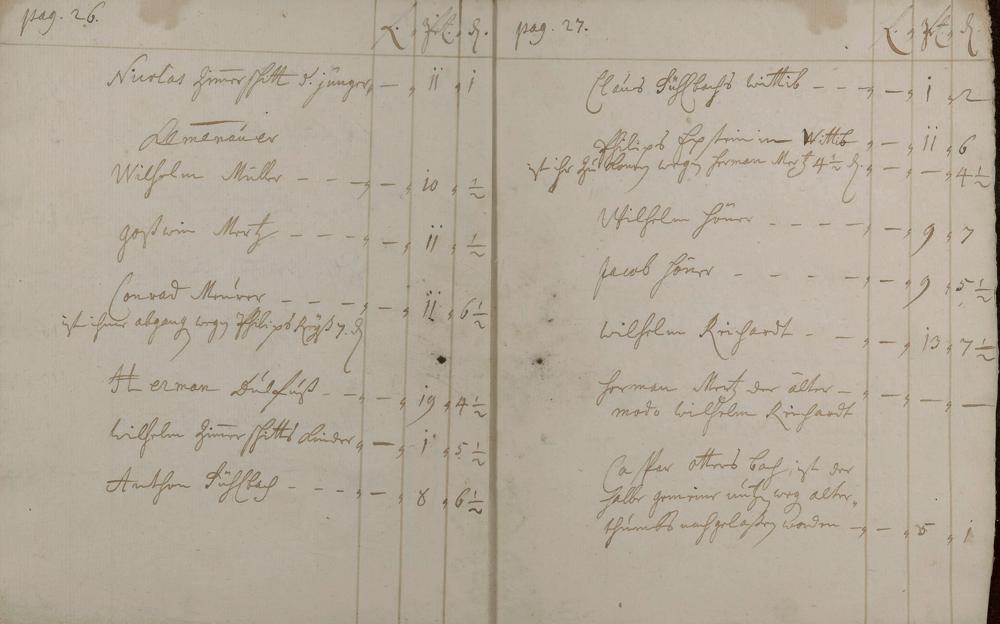 pag. 26.
fl. ß. d.
Nicolas Zimerschitt d. jünger, — 11 1
Lemenauer
Wilhelm Müller - - — 10 ½
Goßwin Mertz - - - — 11 ½
Conrad Meurer - - - — 11 6½
ist ihme abgang wegen Philips 7. d
Herman - - — 19 4½
Wilhelm Zimerschitts Kinder — 1 5½
Anthon Sühlbach - - - — 8 6½
pag. 27.
fl. ß. d.
Claus Sühlbachs Wittib - - - — 1 2
Philips Epsteinin Wittib — 11 6
ist ihr zu kommen wegen Herman Mertz 4½ d. — — 4½
Wilhelm Höner - - - - — 9 7
Jacob Höner - - - — 9 5½
Wilhelm Reichardt - - — 13 7½
Herman Mertz der älter — — — —
modo Wilhelm Reichardt
Caspar Ottersbach, ist der
halbe gemeine nutzen weg. alter-
thumbs nachgelaßen worden — — 5 1